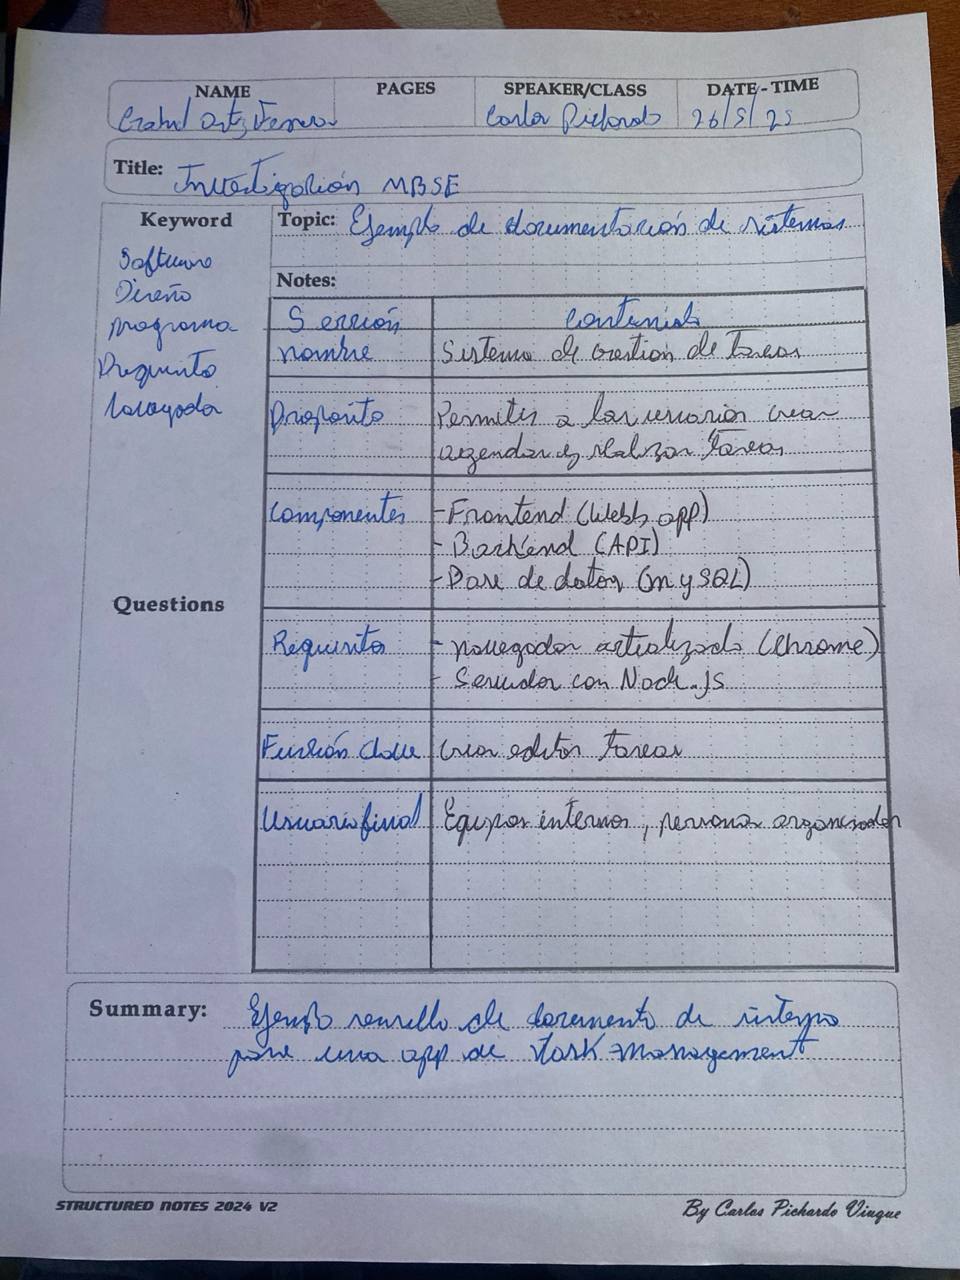 NAME PAGES SPEAKER/CLASS DATE-TIME
26/5/25
Title: Investigación MBSE
Keyword
Software
Diseño
programa
Requisito
Topic: Ejemplo de documentación de sistemas
Notes:
Sección contenido
nombre Sistema de Gestion de tareas
Proposito Permitir a los usuarios crear
agendar y realizar tareas
Componentes - Frontend (Webb app)
- Backend (API)
- Base de datos (mySQL)
Questions
Requisitos - navegador actualizado (Chrome)
- Servidor con Node.js
Función clave crear editar tareas
Usuario final Equipos internos, personas organizador
Summary: Ejemplo sencillo de documento de sistema
para una app de task management
STRUCTURED NOTES 2024 V2 By Carlos Pichardo Viuque